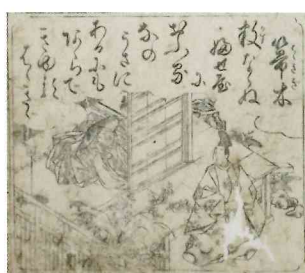 帚木
数ならぬ
ふせ屋
に
おふる
なの
うさに
あるにも
あらて
きゆる